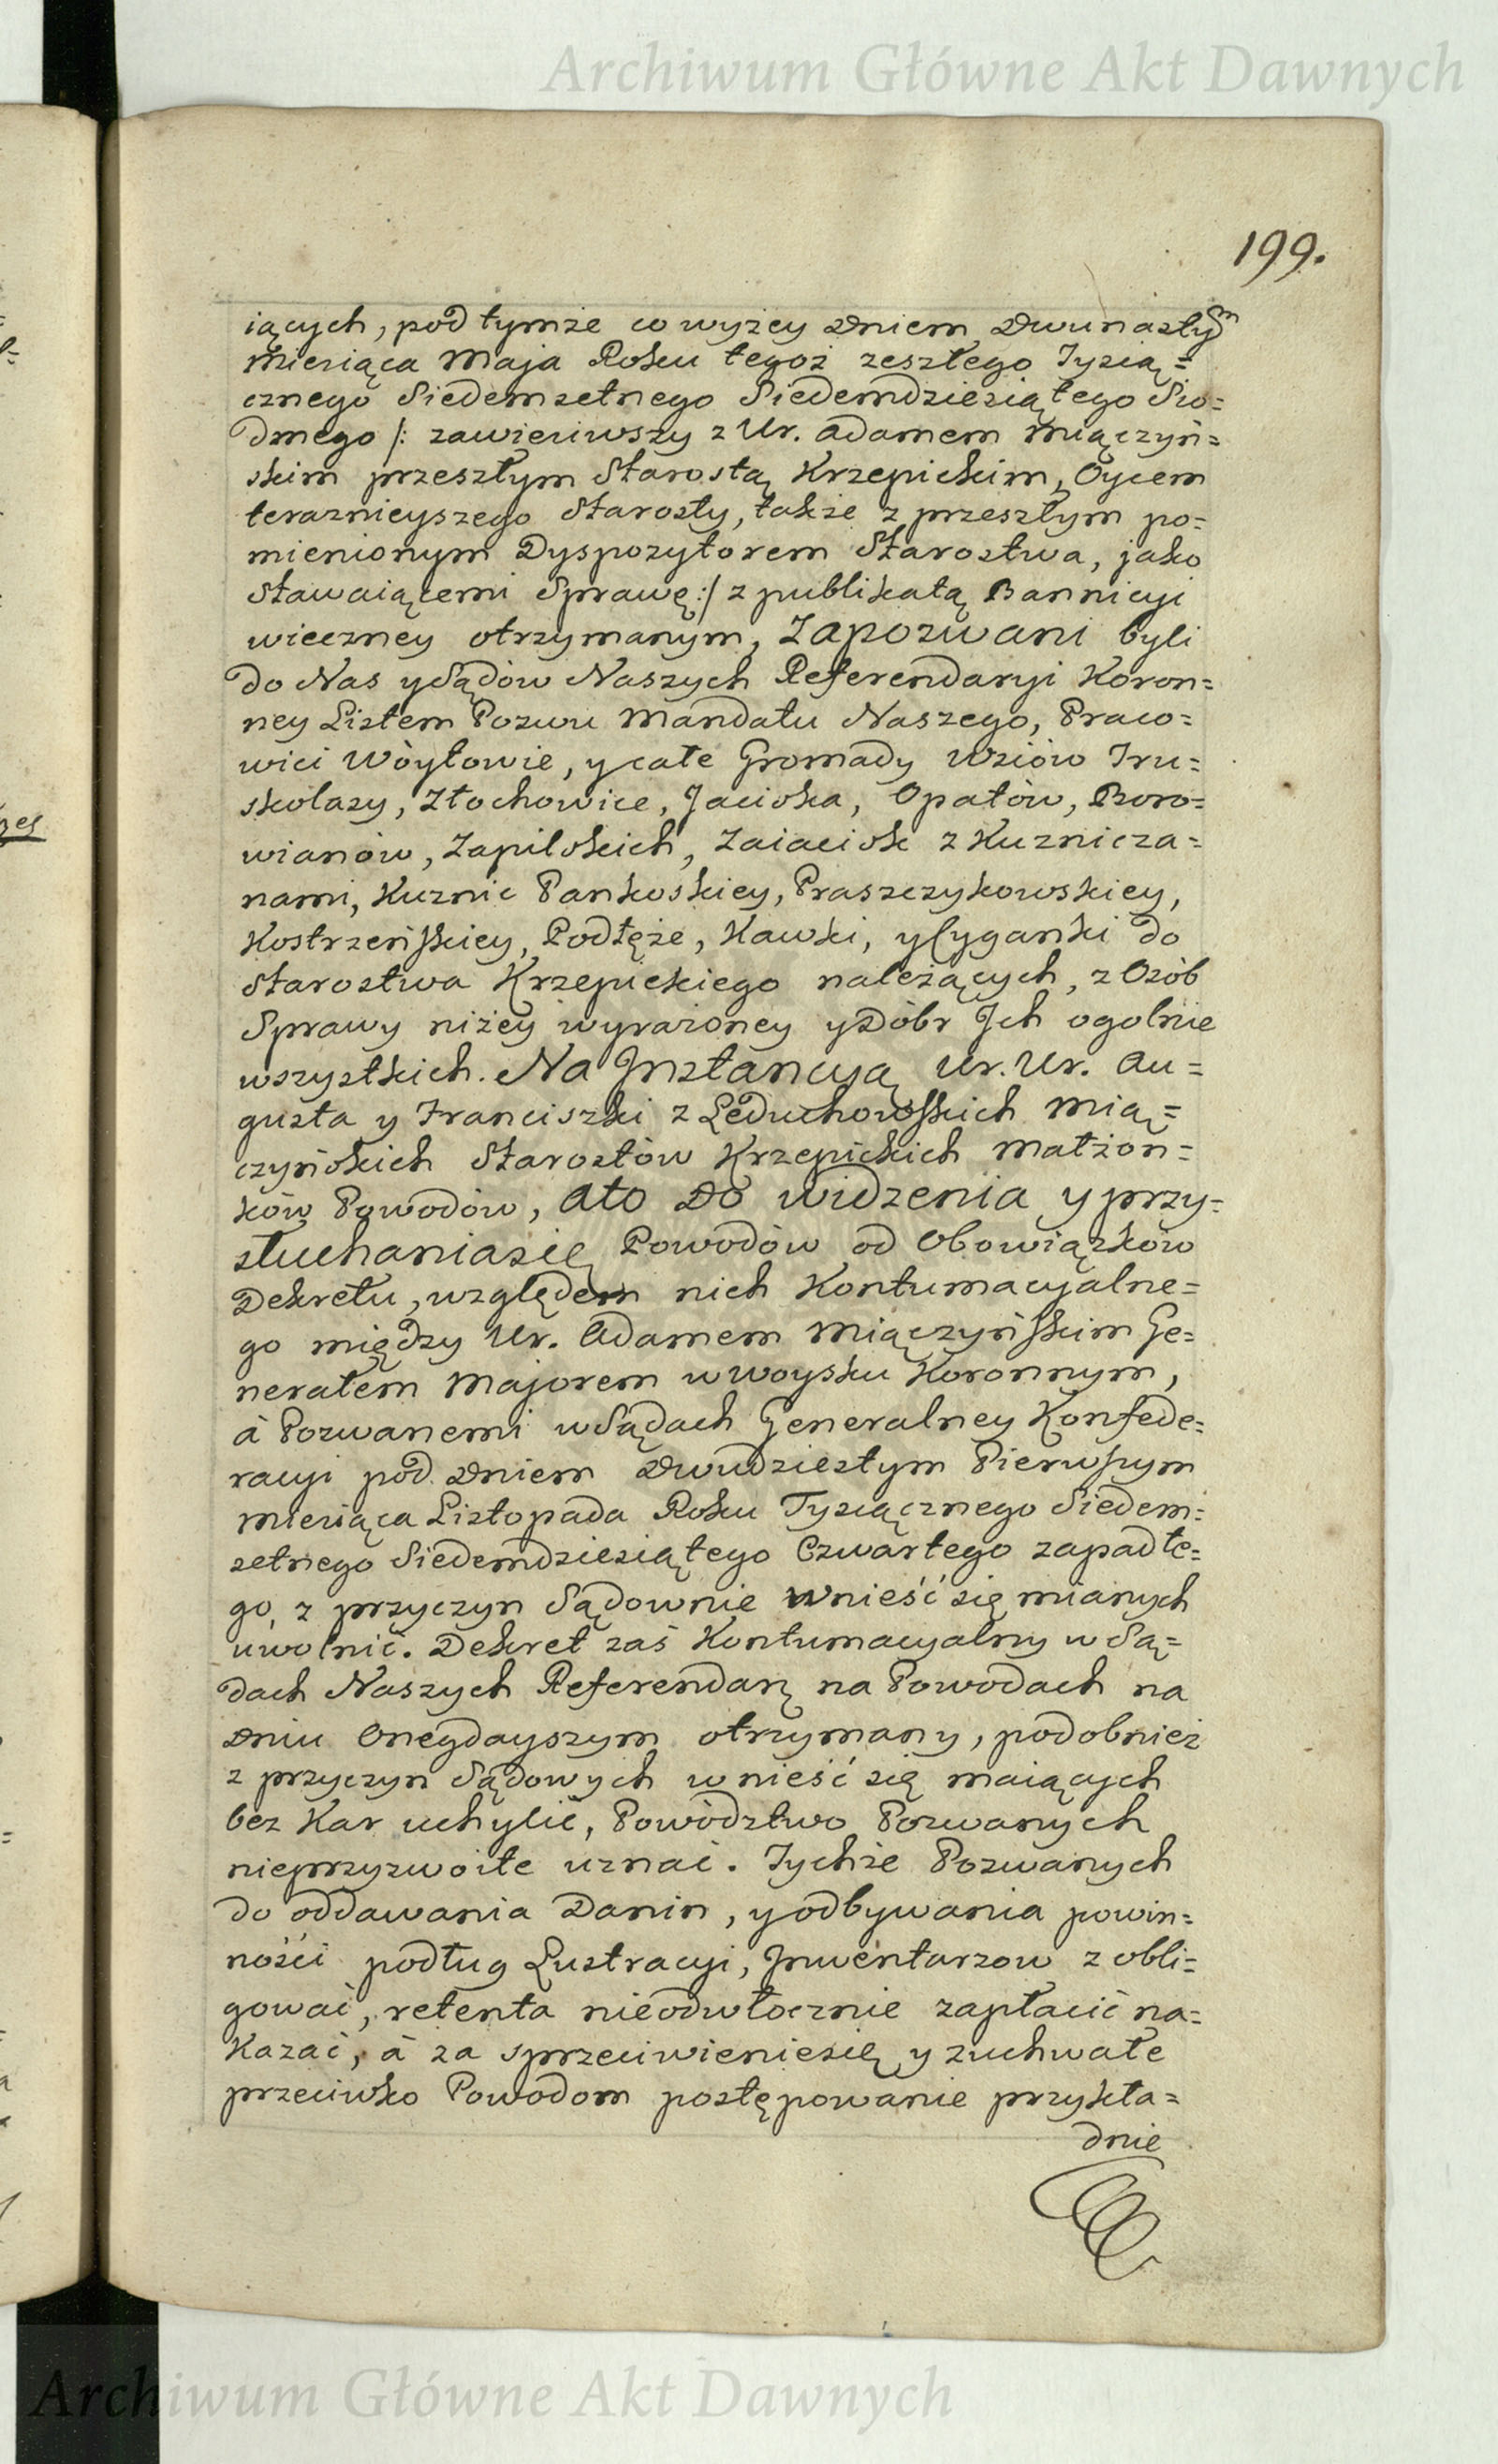 Archiwum Główne Akt Dawnych
199.
iących, pod tymże co wyżey Dniem Dwunastym
Miesiąca Maja Roku tegoż zeszłego Tysią=
cznego Siedemsetnego Siedemdziesiątego Sio=
dmego /: zawiesiwszy z Ur. Adamem Miączyń=
skim przeszłym Starostą Krzepickim, Oycem
teraznieyszego Starosty, także z przeszłym po=
mienionym Dyspozytorem Starostwa, jako
Stawaiącemi Sprawę :/ z publikatą Bannicyi
wieczney otrzymanym, Zapozwani byli
do Nas y Sądów Naszych Referendaryi Koron=
ney Listem Pozwu Mandatu Naszego, Praco=
wici Wóytowie, y całe Gromady Wsiów Tru=
skolasy, Złochowice, Jaciska, Opatów, Boro=
wianów, Zapilskich, Zaiacisk z Kuznicza=
nami, Kuznic Pankoskiey, Praszczykowskiey,
Kostrzeńskiey, Podłęże, Kawki, y Cyganki do
Starostwa Krzepickiego należących, z Osób
Sprawy niżey wyrażoney y Dóbr Jch ogolnie
wszystkich. Na Jnstancyą Ur. Ur. Au=
gusta y Franciszki z Leduchowskich Mią=
czyńskich Starostów Krzepickich Małżon=
ków Powodów, Ato Do widzenia y przy=
słuchaniasię Powodów od Obowiązków
Dekretu, względem nich Kontumacyalne=
go między Ur. Adamem Miączyńskim Ge=
nerałem Majorem w Woysku Koronnym,
à Pozwanemi w Sądach Generalney Konfede=
racyi pod Dniem Dwudziestym Pierwszym
Miesiąca Listopada Roku Tysiącznego Siedem=
setnego Siedemdziesiątego Czwartego zapadłe=
go, z przyczyn Sądownie wnieść się mianych
uwolnić. Dekret zaś Kontumacyalny w Są=
dach Naszych Referendarz na Powodach na
Dniu Onegdayszym otrzymany, podobnież
z przyczyn Sądowych wnieść się maiących
bez Kar uchylić, Powództwo Pozwanych
nieprzyzwoite uznać. Tychże Pozwanych
do oddawania Danin, y odbywania powin=
ności podług Lustracyi, Jnwentarzow z obli=
gować, retenta nieodwłocznie zapłacić na=
kazać, à za sprzeciwieniesię y zuchwałe
przeciwko Powodom postępowanie przykła=
dnie
Archiwum Główne Akt Dawnych